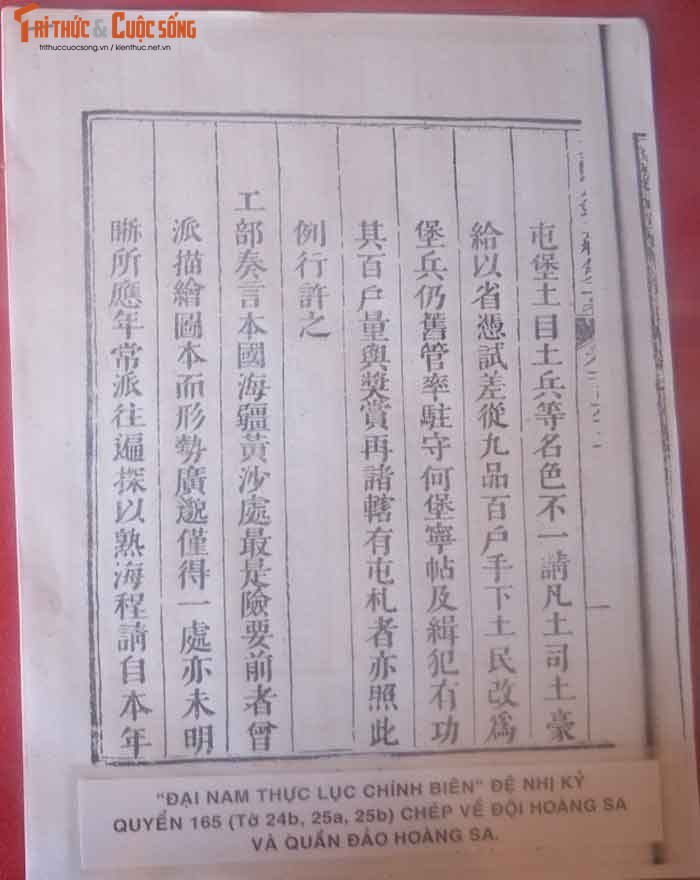 TRI THỨC & CUỘC SỐNG
trithuccuocsong.vn / kienthuc.net.vn
屯堡土目土兵等名色不一請凡土司土豪
給以省憑試差從九品百戶手下土民改為
堡兵仍舊管率駐守何堡寧帖及緝犯有功
其百戶量與獎賞再諸轄有屯札者亦照此
例行許之
工部奏言本國海疆黃沙處最是險要前者曾
派描繪圖本而形勢廣邈僅得一處亦未明
晰所應年常派往遍探以熟海程請自本年
"ĐẠI NAM THỰC LỤC CHÍNH BIÊN" ĐỆ NHỊ KỶ
QUYỂN 165 (Tờ 24b, 25a, 25b) CHÉP VỀ ĐỘI HOÀNG SA
VÀ QUẦN ĐẢO HOÀNG SA.